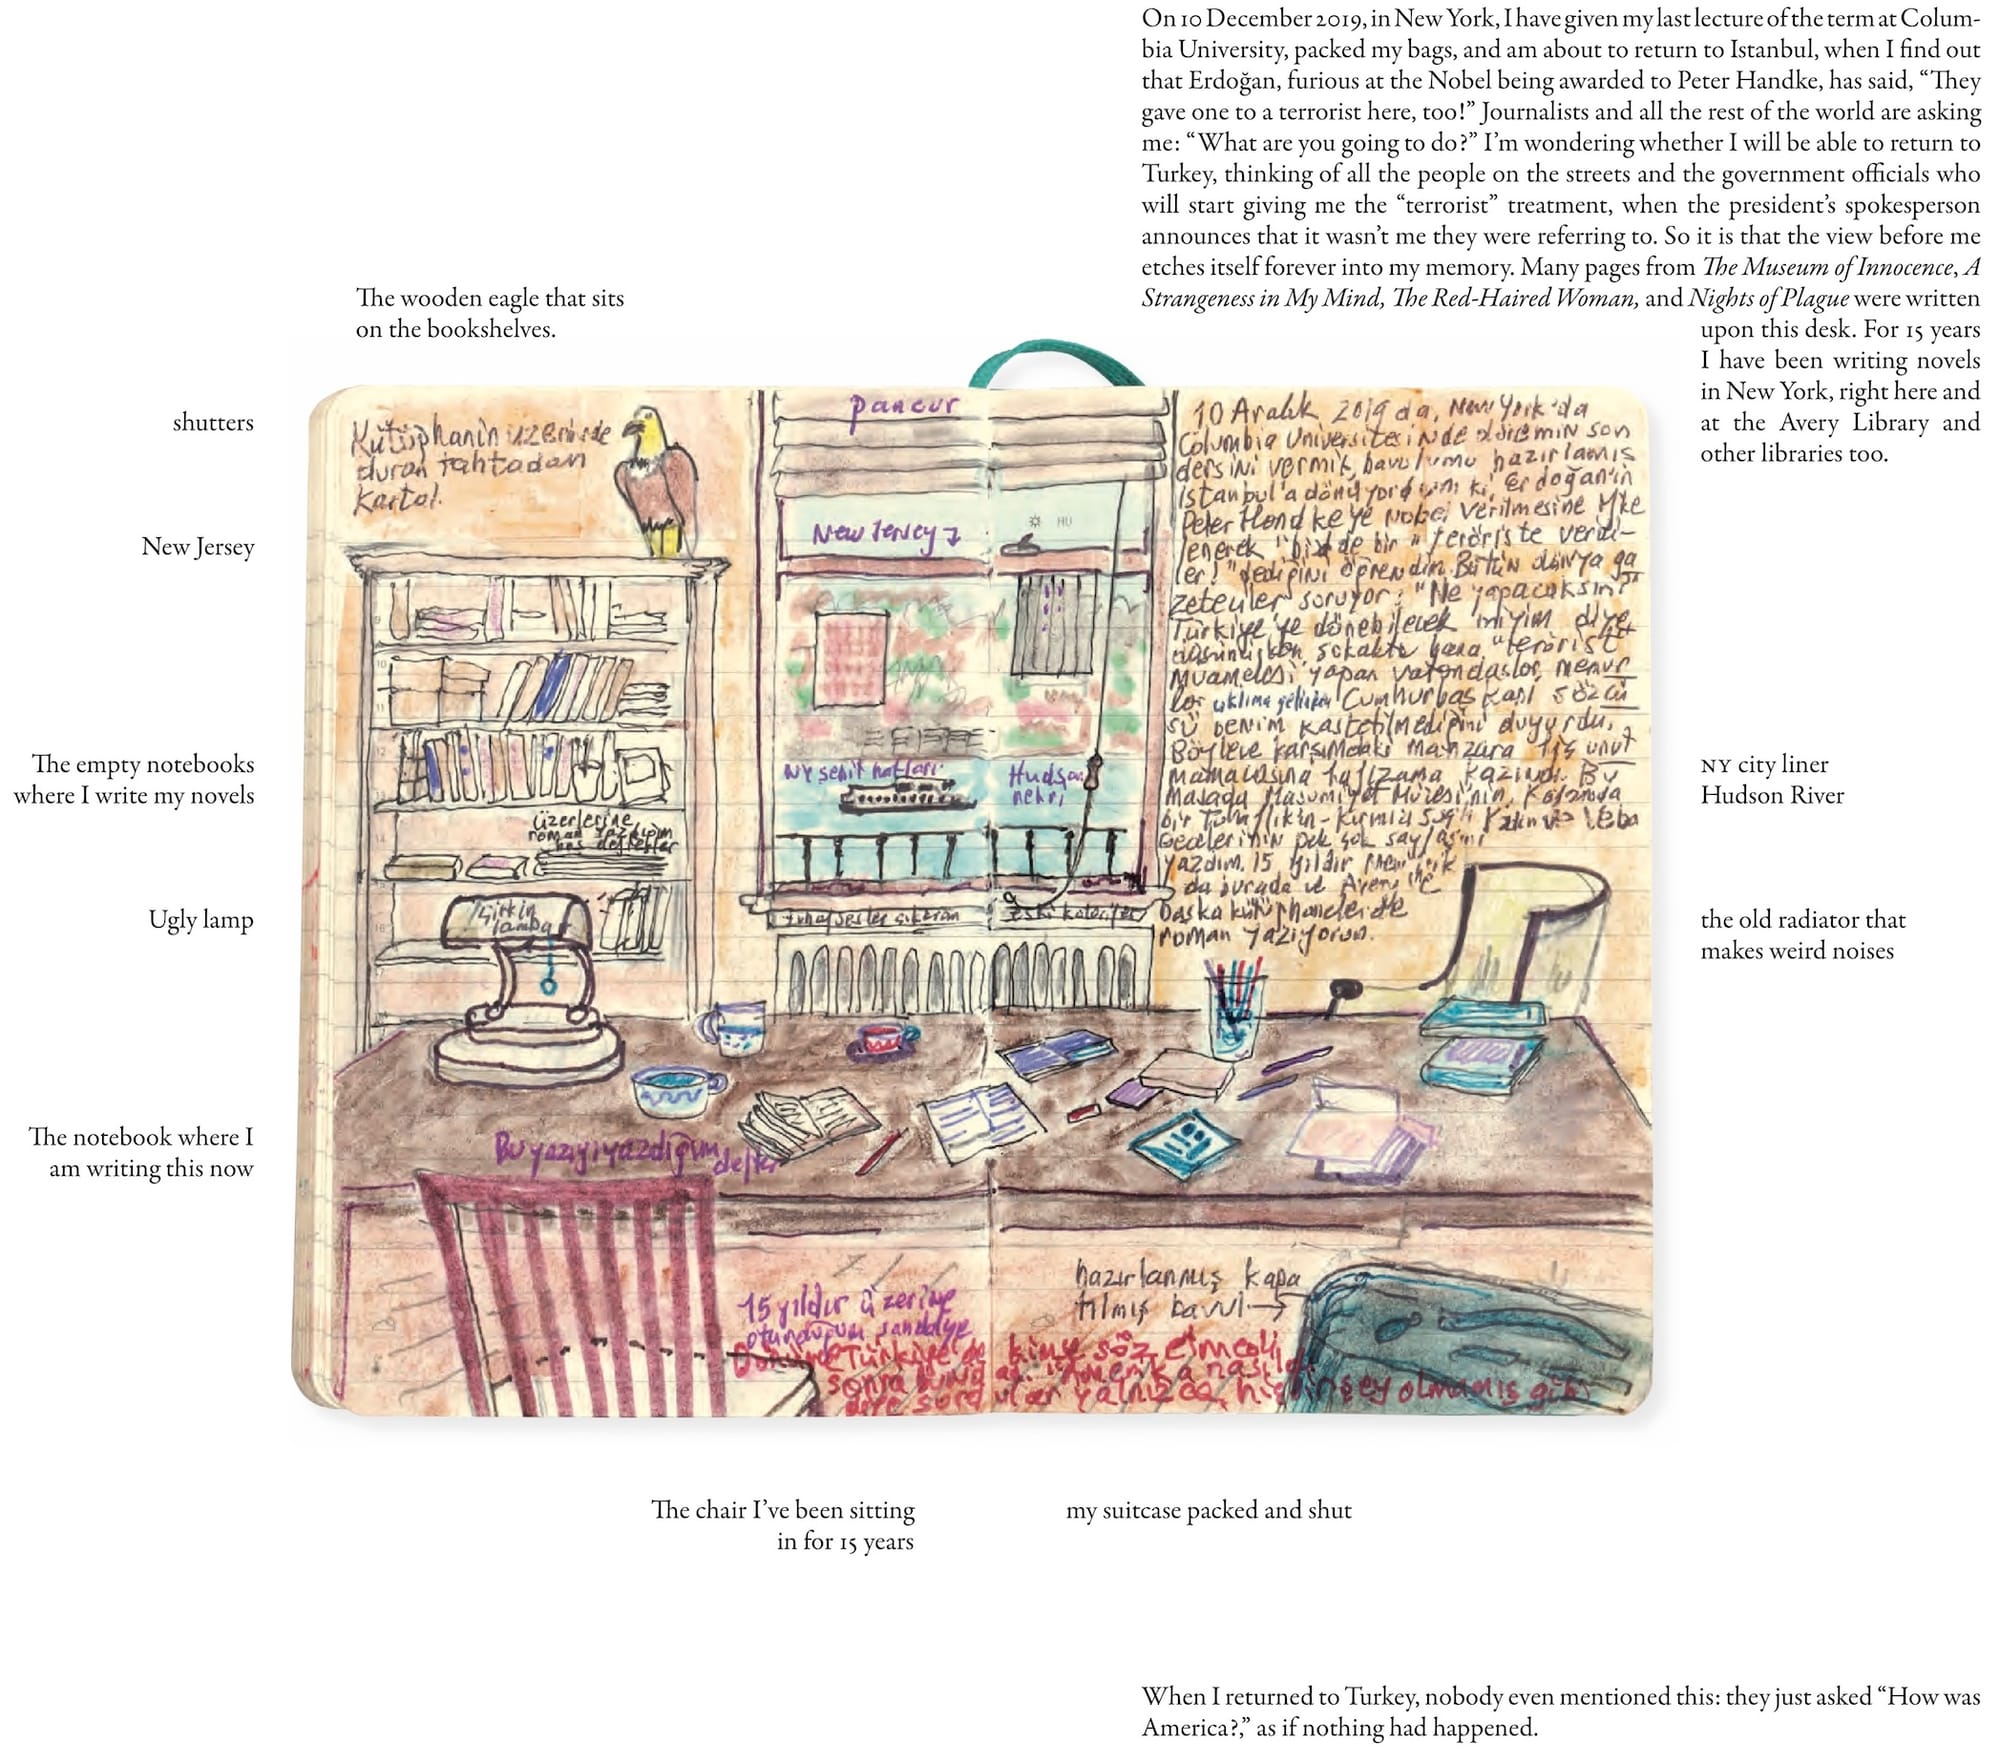 On 10 December 2019, in New York, I have given my last lecture of the term at Colum-
bia University, packed my bags, and am about to return to Istanbul, when I find out
that Erdoğan, furious at the Nobel being awarded to Peter Handke, has said, “They
gave one to a terrorist here, too!” Journalists and all the rest of the world are asking
me: “What are you going to do?” I’m wondering whether I will be able to return to
Turkey, thinking of all the people on the streets and the government officials who
will start giving me the “terrorist” treatment, when the president’s spokesperson
announces that it wasn’t me they were referring to. So it is that the view before me
etches itself forever into my memory. Many pages from The Museum of Innocence, A
Strangeness in My Mind, The Red-Haired Woman, and Nights of Plague were written
upon this desk. For 15 years
I have been writing novels
in New York, right here and
at the Avery Library and
other libraries too.
The wooden eagle that sits
on the bookshelves.
shutters
New Jersey
The empty notebooks
where I write my novels
Ugly lamp
The notebook where I
am writing this now
Kütüphanin üzerinde
duran tahtadan
kartal.
pancur
New Jersey
NY şehir hatları
Hudson
nehri
üzerlerine
roman yazdığım
boş defterler
Çirkin
lamba
tuhaf sesler çıkaran
eski kalorifer
10 Aralık 2019 da, New York'da
Columbia Üniversitesinde dönemin son
dersini vermiş, bavulumu hazırlamış
İstanbul'a dönüyordum ki, Erdoğan'ın
Peter Handkeye Nobel verilmesine öfke
lenerek "bizde bir teröriste verdi-
ler!" dediğini öğrendim. Bütün dünya ga
zeteciler soruyor: "Ne yapacaksın?"
Türkiye'ye dönebilecek miyim diye
düşünürken sokakta bana "terörist"
muamelesi yapan vatandaşlar, memur
lar aklıma gelirken Cumhurbaşkanı sözcü
sü benim kastedilmediğimi duyurdu.
Böylece karşımdaki manzara hiç unut
mamacasına hafızama kazındı. Bu
masada Masumiyet Müzesi'nin, Kafamda
bir Tuhaflıkın - Kırmızı Saçlı Kadın ve Veba
Gecelerinin pek çok sayfasını
yazdım. 15 yıldır
da burada ve Avery
başka kütüphanelerde
roman yazıyorum.
Bu yazıyı yazdığım defter
15 yıldır üzerine
oturduğum sandalye
hazırlanmış kapa
tılmış bavul
Türkiye'de kimse söz etmedi
sonra bunu nasıl
diye sordular yalnızca, hiçbir şey olmamış gibi
NY city liner
Hudson River
the old radiator that
makes weird noises
The chair I’ve been sitting
in for 15 years
my suitcase packed and shut
When I returned to Turkey, nobody even mentioned this: they just asked “How was
America?,” as if nothing had happened.